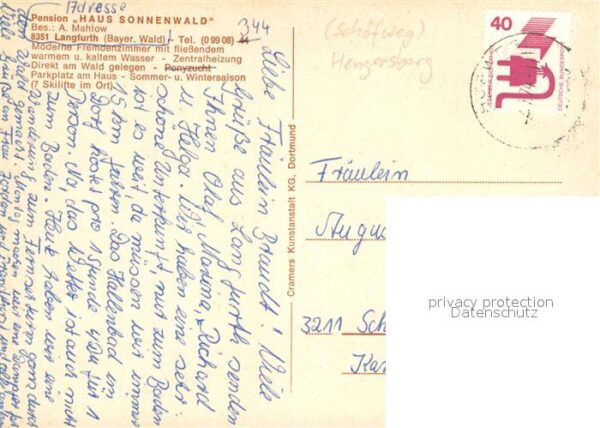 Adresse
Pension „HAUS SONNENWALD"
Bes.: A. Mahlow
8351 Langfurth (Bayer. Wald) - Tel. (0 99 08) 44
344
Moderne Fremdenzimmer mit fließendem
warmem u. kaltem Wasser - Zentralheizung
Direkt am Wald gelegen - Ponyzucht
Parkplatz am Haus - Sommer- u. Wintersaison
(7 Skilifte im Ort)
Liebe Fräulein Brandt! Viele
Grüße aus Langfurth senden
Ihnen Olaf, Marina, Richard
u. Helga. Wir haben eine sehr
schöne Unterkunft, nur zum Baden
ist es weit, da müssen wir immer
15 km fahren. Das Hallenbad im
Dorf kostet pro 1 Stunde 4DM für 1
Person. Na, das Wetter ist auch nicht
zum Baden. Heute haben wir eine
Wanderung zum ganz durch
den Wald gemacht.
Viele Grüße an Frau
Cramers Kunstanstalt KG, Dortmund
(Schöfweg)
Hengersberg
40
DEUTSCHE BUNDESPOST
Fräulein
Augu
3211 Sch
Kar
privacy protection
Datenschutz